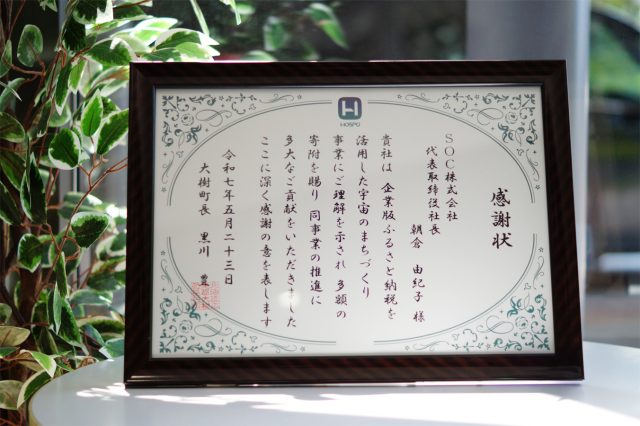 HOSPO
感謝状
SOC株式会社
代表取締役社長
朝倉 由紀子 様
貴社は 企業版ふるさと納税を
活用した宇宙のまちづくり
事業にご理解を示され 多額の
寄附を賜り 同事業の推進に
多大なご貢献をいただきました
ここに深く感謝の意を表します
令和七年五月二十三日
大樹町長 黒川 豊